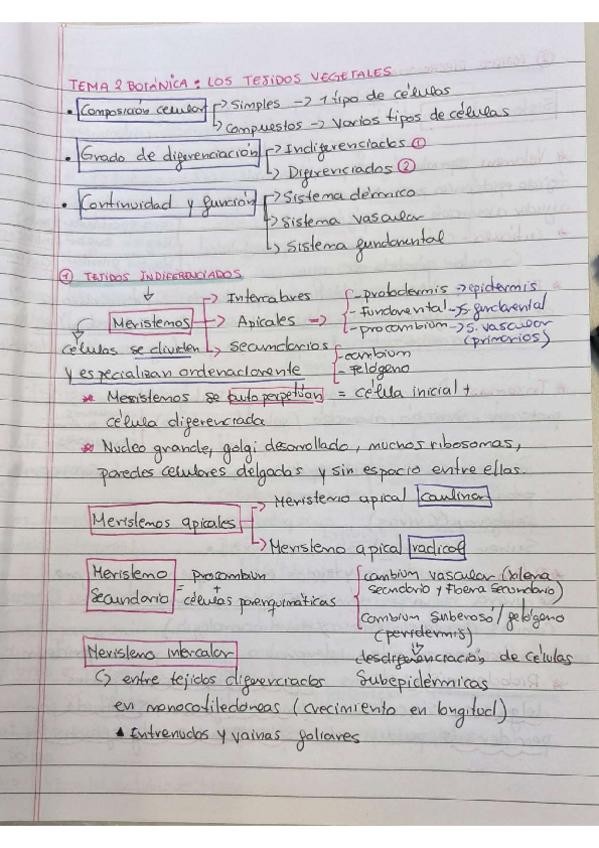 TEMA 2 BOTÁNICA: LOS TEJIDOS VEGETALES
• Composición celular → Simples → 1 tipo de células
→ Compuestos → Varios tipos de células
• Grado de diferenciación → Indiferenciados ①
→ Diferenciados ②
• Continuidad y función → Sistema dérmico
→ Sistema vascular
→ Sistema fundamental
① TEJIDOS INDIFERENCIADOS
Meristemos → Intercalares
→ Apicales ⇒ - protodermis → epidermis
- fundamental → S. fundamental
- procambium → S. vascular (primarios)
→ Secundarios - cambium
- felógeno
células se dividen
y especializan ordenadamente
* Meristemos se autoperpetúan = célula inicial +
célula diferenciada
* Nucleo grande, golgi desarrollado, muchos ribosomas,
paredes celulares delgadas y sin espacio entre ellas.
Meristemos apicales → Meristemo apical caulinar
→ Meristemo apical radical
Meristemo Secundario = Procambium + células parenquimáticas
cambium vascular (xilema
secundario y floema secundario)
cambium suberoso/felógeno
(peridermis)
desdiferenciación de células
subepidérmicas
Meristemo intercalar
↳ entre tejidos diferenciados
en monocotiledóneas (crecimiento en longitud)
▲ Entrenudos y vainas foliares